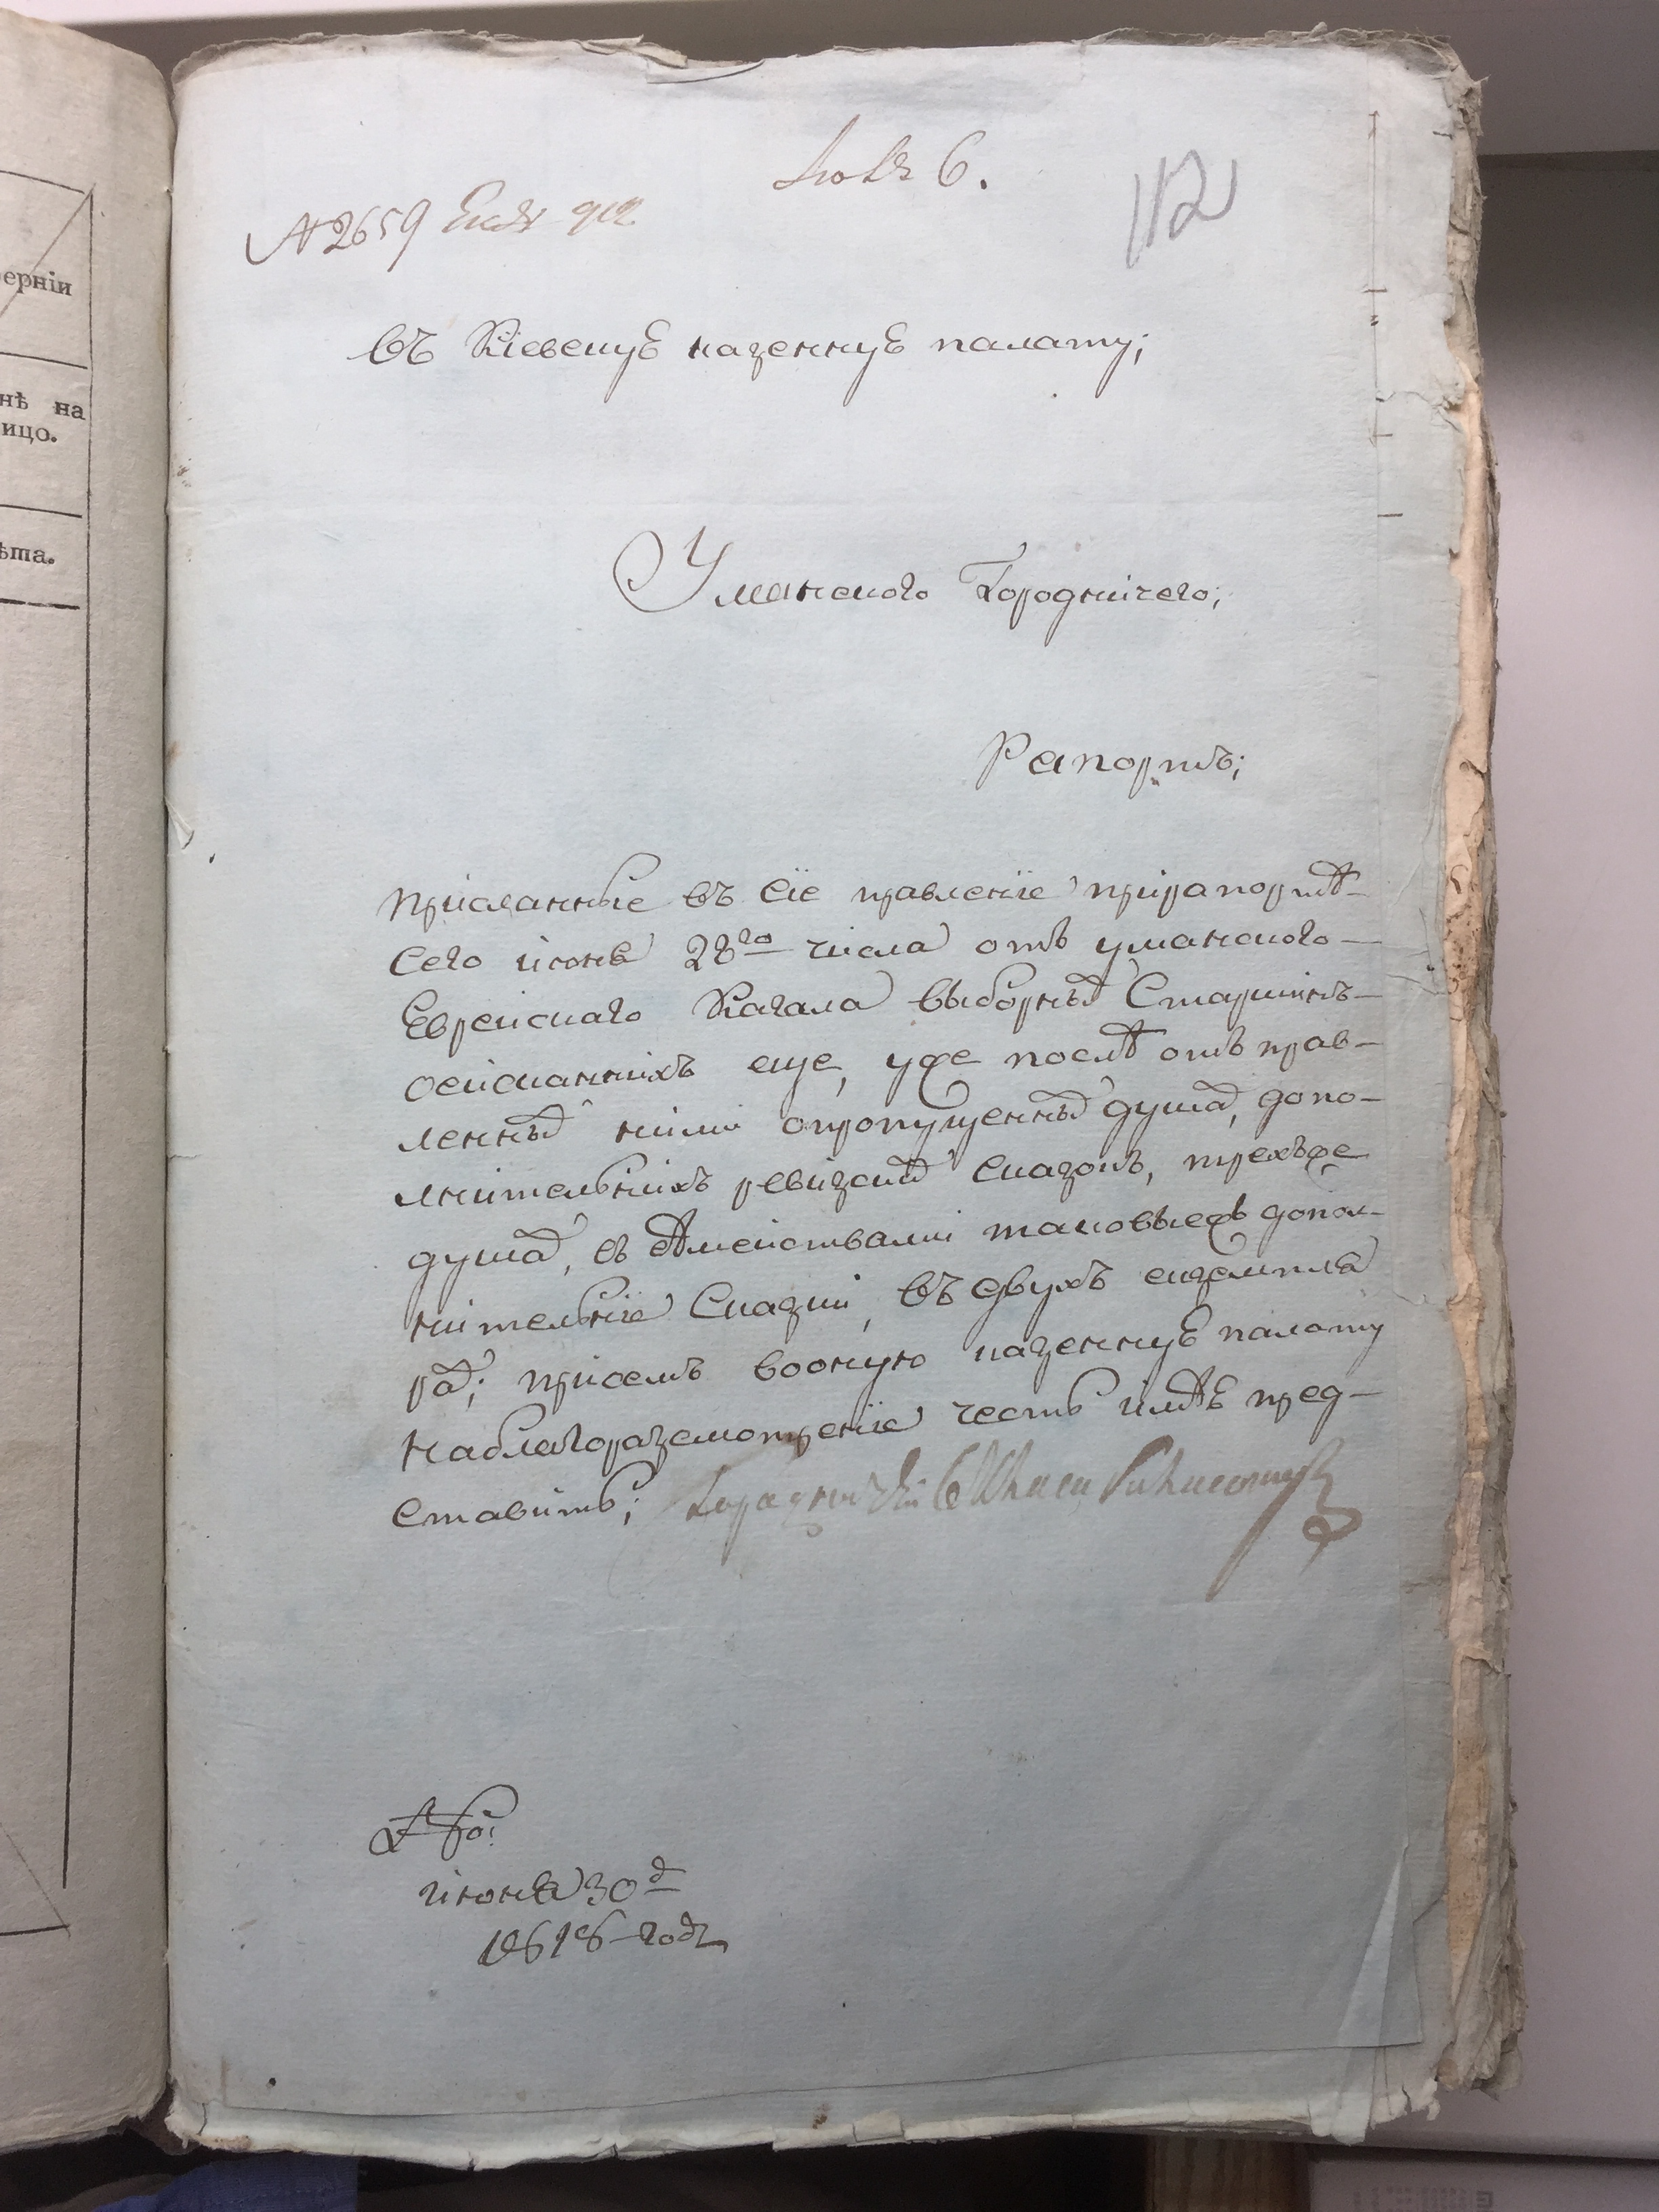 ерніи
нѣ на
ицо.
ѣта.
6.
112
№ 2659
въ Кіевскую казенную палату;
Уманского Городничего;
Рапортъ;
Присланные въ сіе правленіе при рапортѣ
сего іюня 28го числа отъ уманского
Еврейскаго Кагала выборных Старшинъ
еще, уже послѣ отправ-
ленных ними опропущенных душах, допо-
лнительнихъ ревизских сказокъ, трехъже
душах, съ сѣмействами таковыежъ допол-
нительніе Сказки, въ двухъ екземпля
рах; присемъ вооную казенную палату
наблагоразсмотреніе честь имѣю пред-
ставить; Городничий
іюня 30 д
1818 года